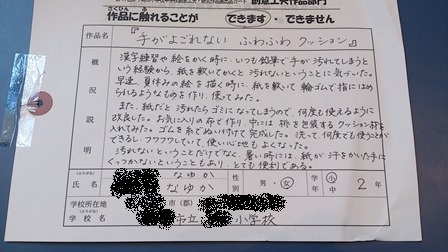 創意工夫作品部門
さくひん
作品に触れることが できます・できません
作品名 『手がよごれない ふわふわ クッション』
概況説明
漢字練習や絵をかく時に、いつも鉛筆で手が汚れてしまうと
いう経験から、紙を敷いてかくと汚れないということに気づいた。
早速、夏休みの絵を描く時に、紙を敷いて輪ゴムで指にはめ
られるようなものを作り、使ってみた。
また、紙だと汚れたらゴミになってしまうので、何度も使えるように
改良した。お気に入りの布で作り、中には桃を包装するクッション材を
入れてみた。ゴムを糸でぬい付けて完成した。洗って何度でも使うことが
できるし、フワフワしていて使い心地もよくなった。
汚れないということだけでなく、暑い時には、紙が汗をかいた手に
くっつかないということもあり、とても便利である。
(ふりがな) なゆか
氏名 なゆか
性別 男・女
学年 小 中 2年
学校所在地 市(郡)
(ふりがな)
学校名 市立 小学校